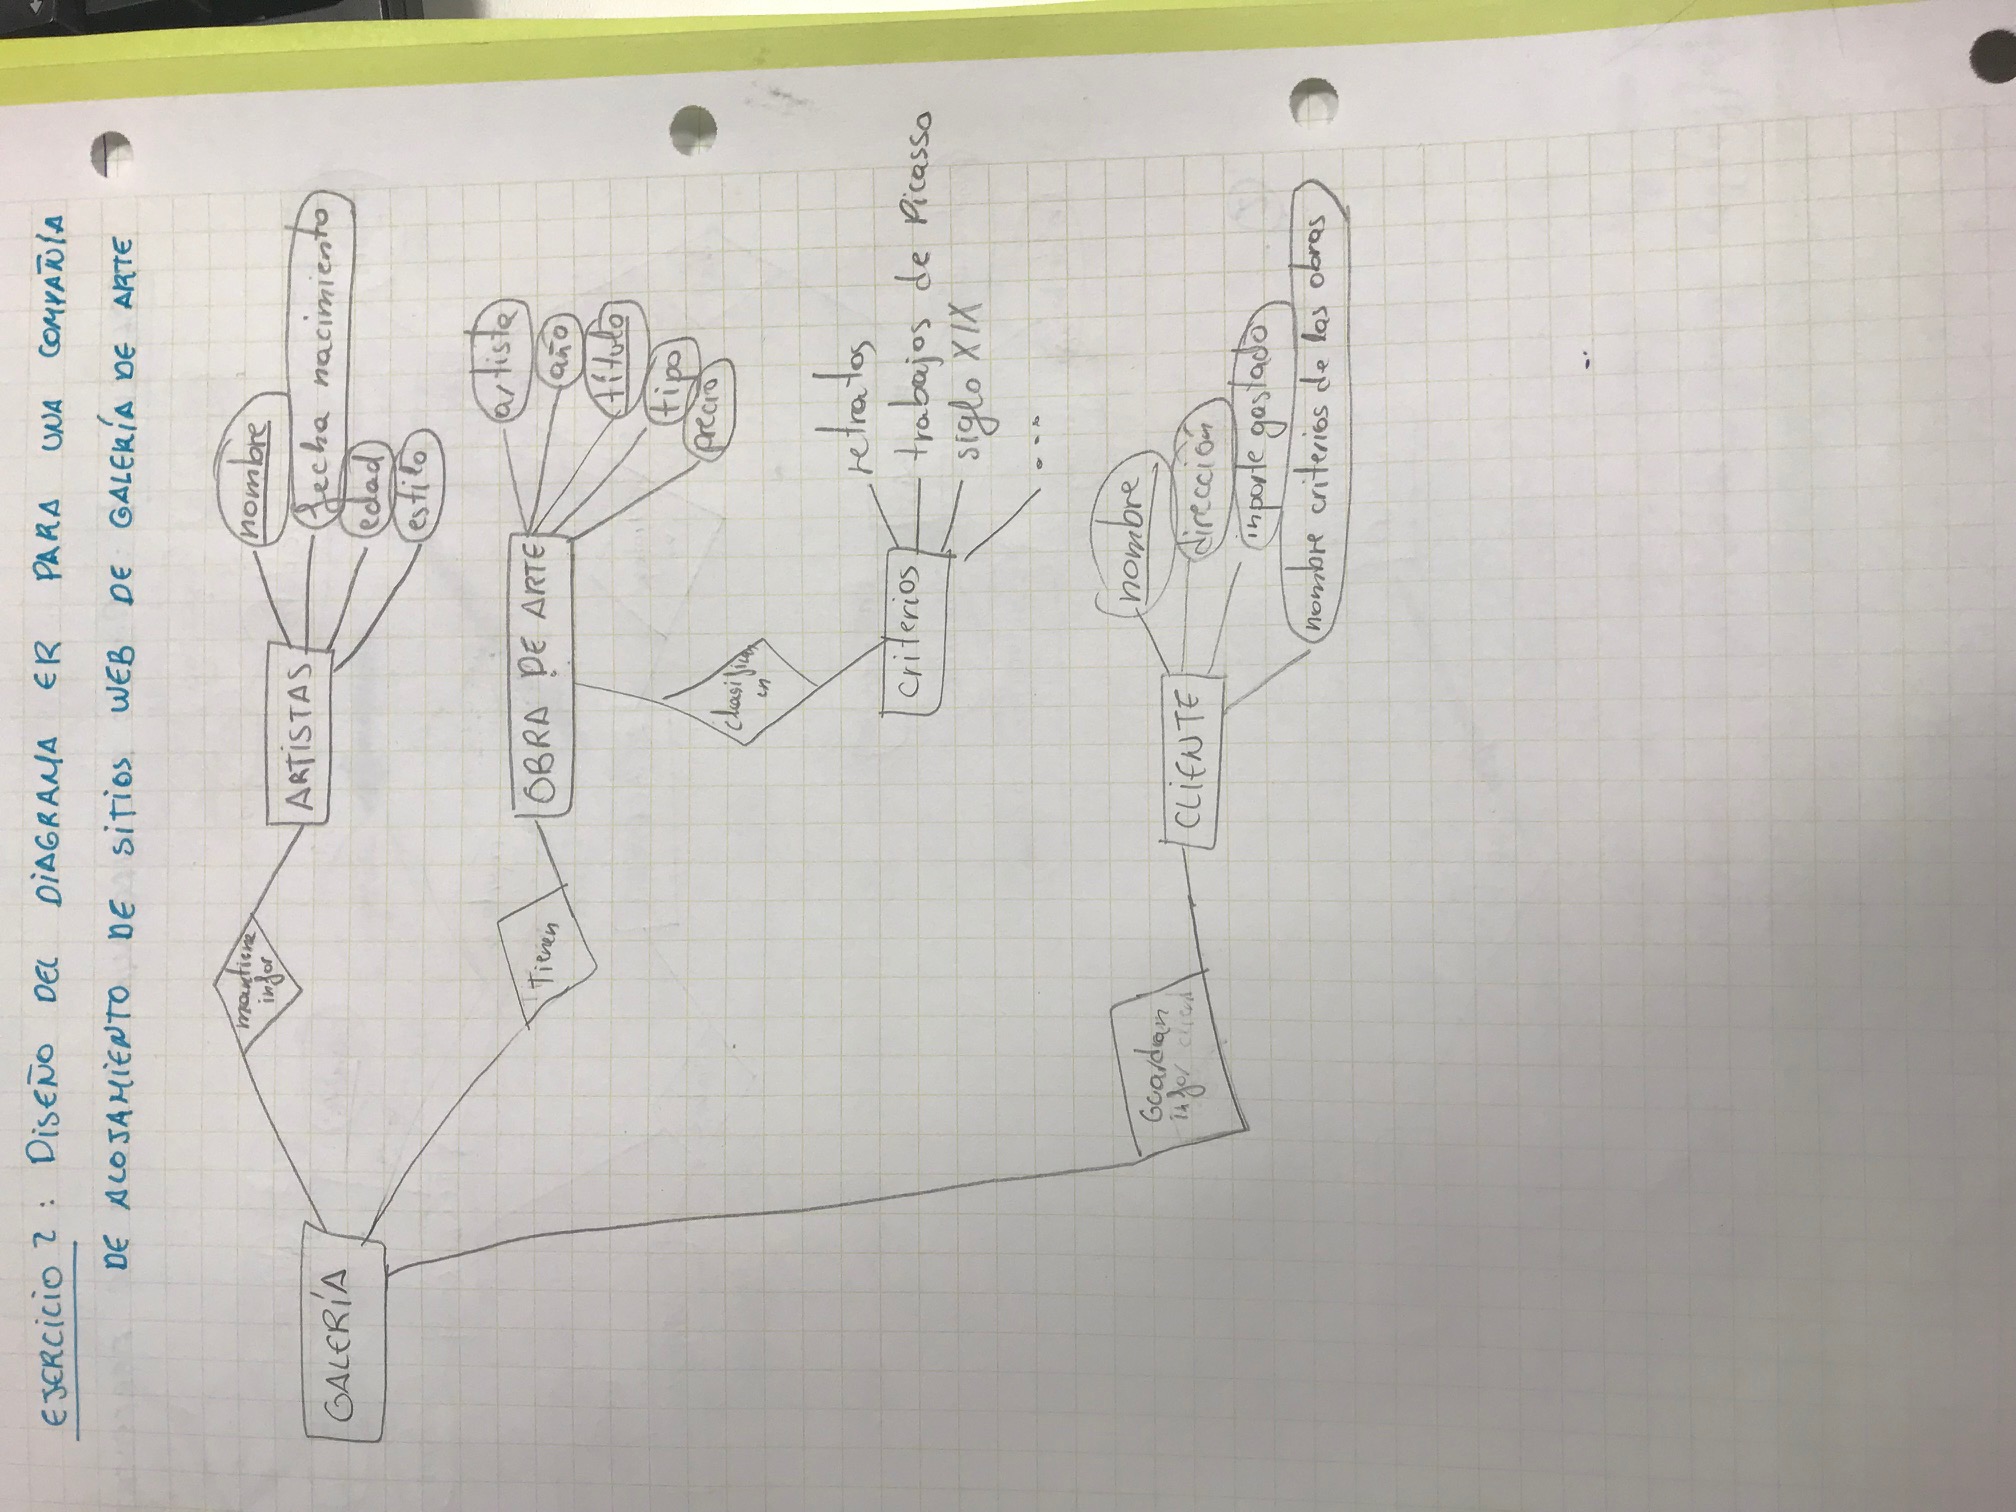 EJERCICIO 2: DISEÑO DEL DIAGRAMA ER PARA UNA COMPAÑÍA
DE ALOJAMIENTO DE SITIOS WEB DE GALERÍA DE ARTE
mantiene
infor
nombre
ARTISTAS
fecha nacimiento
GALERÍA
edad
estilo
artista
Tienen
OBRA DE ARTE
año
título
tipo
precio
clasifican
en
retratos
criterios
trabajos de Picasso
siglo XIX
...
nombre
Guardan
infor client
CLIENTE
dirección
inporte gastado
nombre criterios de las obras